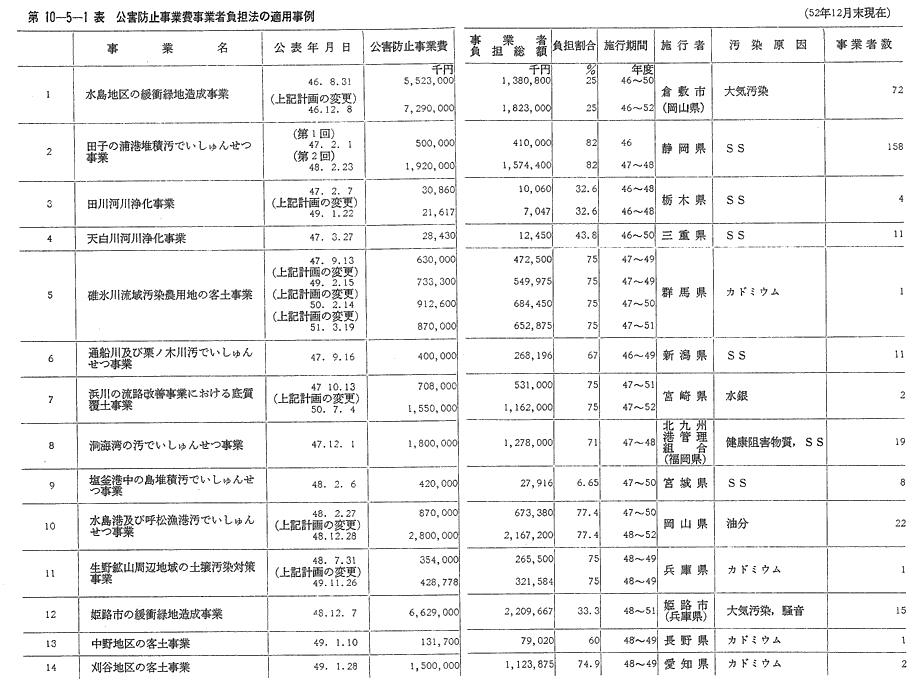 第 10―5―1 表 公害防止事業費事業者負担法の適用事例
(52年12月末現在)
事業名 公表年月日 公害防止事業費 事業者負担総額 負担割合 施行期間 施行者 汚染原因 事業者数
千円 千円 % 年度
1 水島地区の緩衝緑地造成事業 46. 8.31 5,523,000 1,380,800 25 46〜50 倉敷市(岡山県) 大気汚染 72
(上記計画の変更)
46.12. 8 7,290,000 1,823,000 25 46〜52
2 田子の浦港堆積汚でいしゅんせつ事業 (第1回)
47. 2. 1 500,000 410,000 82 46 静岡県 SS 158
(第2回)
48. 2.23 1,920,000 1,574,400 82 47〜48
3 田川河川浄化事業 47. 2. 7 30,860 10,060 32.6 46〜48 栃木県 SS 4
(上記計画の変更)
49. 1.22 21,617 7,047 32.6 46〜48
4 天白川河川浄化事業 47. 3.27 28,430 12,450 43.8 46〜50 三重県 SS 11
5 碓氷川流域汚染農用地の客土事業 47. 9.13 630,000 472,500 75 47〜49 群馬県 カドミウム 1
(上記計画の変更)
49. 2.15 733,300 549,975 75 47〜49
(上記計画の変更)
50. 2.14 912,600 684,450 75 47〜50
(上記計画の変更)
51. 3.19 870,000 652,875 75 47〜51
6 通船川及び栗ノ木川汚でいしゅんせつ事業 47. 9.16 400,000 268,196 67 46〜49 新潟県 SS 11
7 浜川の流路改善事業における底質覆土事業 47 10.13 708,000 531,000 75 47〜51 宮崎県 水銀 2
(上記計画の変更)
50. 7. 4 1,550,000 1,162,000 75 47〜52
8 洞海湾の汚でいしゅんせつ事業 47.12. 1 1,800,000 1,278,000 71 47〜48 北九州港管理組合(福岡県) 健康阻害物質,SS 19
9 塩釜港中の島堆積汚でいしゅんせつ事業 48. 2. 6 420,000 27,916 6.65 47〜50 宮城県 SS 8
10 水島港及び呼松漁港汚でいしゅんせつ事業 48. 2.27 870,000 673,380 77.4 47〜50 岡山県 油分 22
(上記計画の変更)
48.12.28 2,800,000 2,167,200 77.4 48〜52
11 生野鉱山周辺地域の土壌汚染対策事業 48. 7.31 354,000 265,500 75 48〜49 兵庫県 カドミウム 1
(上記計画の変更)
49.11.26 428,778 321,584 75 48〜49
12 姫路市の緩衝緑地造成事業 48.12. 7 6,629,000 2,209,667 33.3 48〜51 姫路市(兵庫県) 大気汚染,騒音 15
13 中野地区の客土事業 49. 1.10 131,700 79,020 60 48〜49 長野県 カドミウム 1
14 刈谷地区の客土事業 49. 1.28 1,500,000 1,123,875 74.9 48〜49 愛知県 カドミウム 2